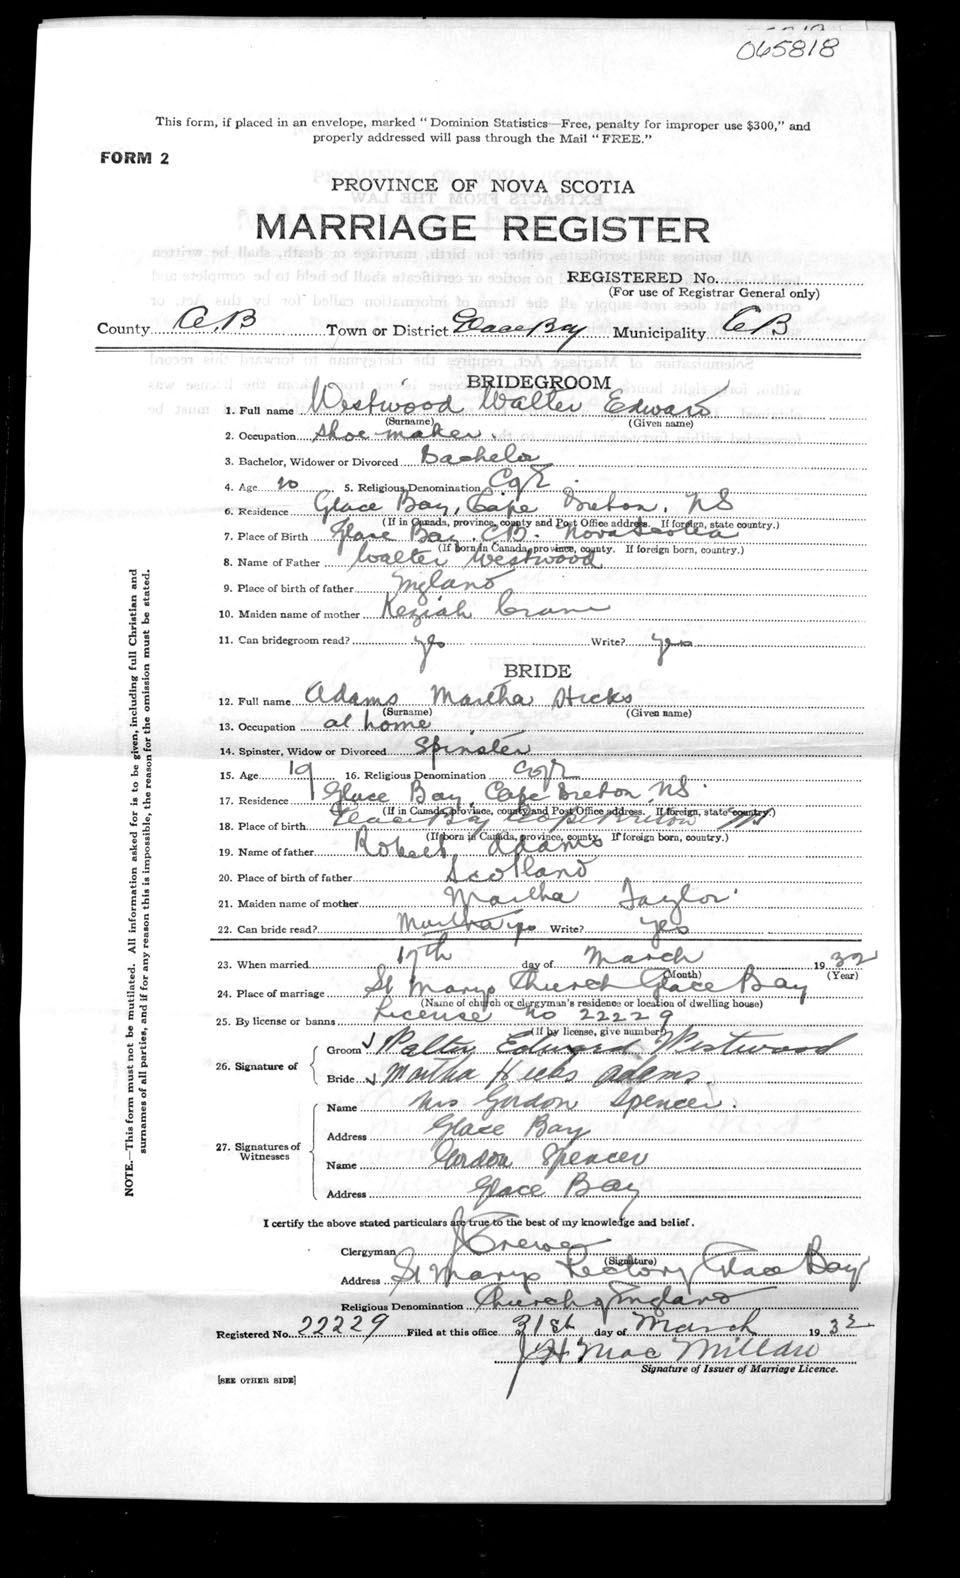 065818
This form, if placed in an envelope, marked "Dominion Statistics—Free, penalty for improper use $300," and
properly addressed will pass through the Mail "FREE."
FORM 2
PROVINCE OF NOVA SCOTIA
MARRIAGE REGISTER
REGISTERED No.
(For use of Registrar General only)
County C.B Town or District Glace Bay Municipality CB
BRIDEGROOM
1. Full name Westwood Walter Edward
(Surname) (Given name)
2. Occupation Shoe maker.
3. Bachelor, Widower or Divorced Bachelor
4. Age 20 5. Religious Denomination C of E
6. Residence Glace Bay, Cape Breton, NS
(If in Canada, province, county and Post Office address. If foreign, state country.)
7. Place of Birth Glace Bay. CB. Nova Scotia
(If born in Canada, province, county. If foreign born, country.)
8. Name of Father Walter Westwood
9. Place of birth of father England
10. Maiden name of mother Keziah Crane
11. Can bridegroom read? yes Write? yes
BRIDE
12. Full name Adams Martha Hicks
(Surname) (Given name)
13. Occupation at home
14. Spinster, Widow or Divorced Spinster
15. Age 19 16. Religious Denomination C of E
17. Residence Glace Bay, Cape Breton, NS.
(If in Canada, province, county and Post Office address. If foreign, state country.)
18. Place of birth Glace Bay Cape Breton NS
(If born in Canada, province, county. If foreign born, country.)
19. Name of father Robert Adams
20. Place of birth of father Scotland
21. Maiden name of mother Martha Taylor
22. Can bride read? Martha yes Write? yes
23. When married 17th day of March 1932
(Month) (Year)
24. Place of marriage St Marys Church Glace Bay
(Name of church or clergyman's residence or location of dwelling house)
25. By license or banns License No 22229
(If by license, give number)
26. Signature of
Groom Walter Edward Westwood
Bride Martha Hicks Adams.
27. Signatures of Witnesses
Name Mrs Gordon Spencer.
Address Glace Bay
Name Gordon Spencer
Address Glace Bay
I certify the above stated particulars are true to the best of my knowledge and belief.
Clergyman
(Signature)
Address St Marys Rectory Glace Bay
Religious Denomination Church of England
Registered No. 22229 Filed at this office 31st day of March 1932
J H MacMillan
Signature of Issuer of Marriage Licence.
[SEE OTHER SIDE]
NOTE.—This form must not be mutilated. All information asked for is to be given, including full Christian and
surnames of all parties, and if for any reason this is impossible, the reason for the omission must be stated.